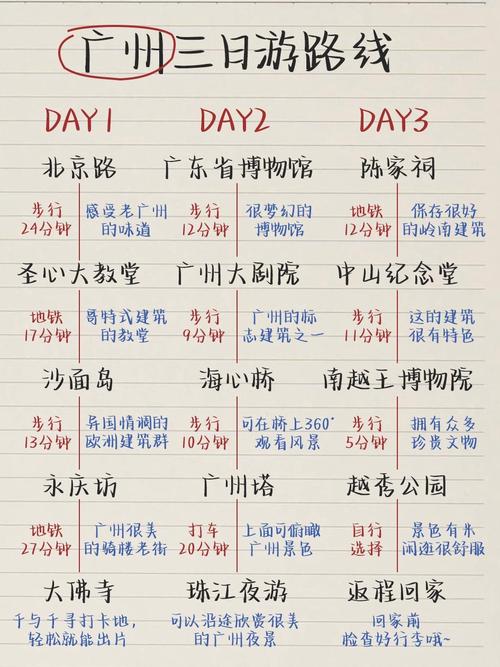 广州三日游路线
DAY1
北京路
步行
24分钟
感受老广州
的味道
圣心大教堂
地铁
17分钟
哥特式建筑
的教堂
沙面岛
步行
13分钟
异国情澜的
欧洲建筑群
永庆坊
地铁
27分钟
广州很美
的骑楼老街
大佛寺
千与千寻打卡地,
轻松就能出片
DAY2
广东省博物馆
步行
12分钟
很梦幻的
博物馆
广州大剧院
步行
9分钟
广州的标
志建筑之一
海心桥
步行
10分钟
可在桥上360°
观看风景
广州塔
打车
20分钟
上面可俯瞰
广州景色
珠江夜游
可以沿途欣赏很美
的广州夜景
DAY3
陈家祠
地铁
12分钟
保存很好
的岭南建筑
中山纪念堂
步行
11分钟
这的建筑
很有特色
南越王博物院
步行
5分钟
拥有众多
珍贵文物
越秀公园
自行
选择
景色有米
闲逛很舒服
返程回家
回家前
检查好行李哦~